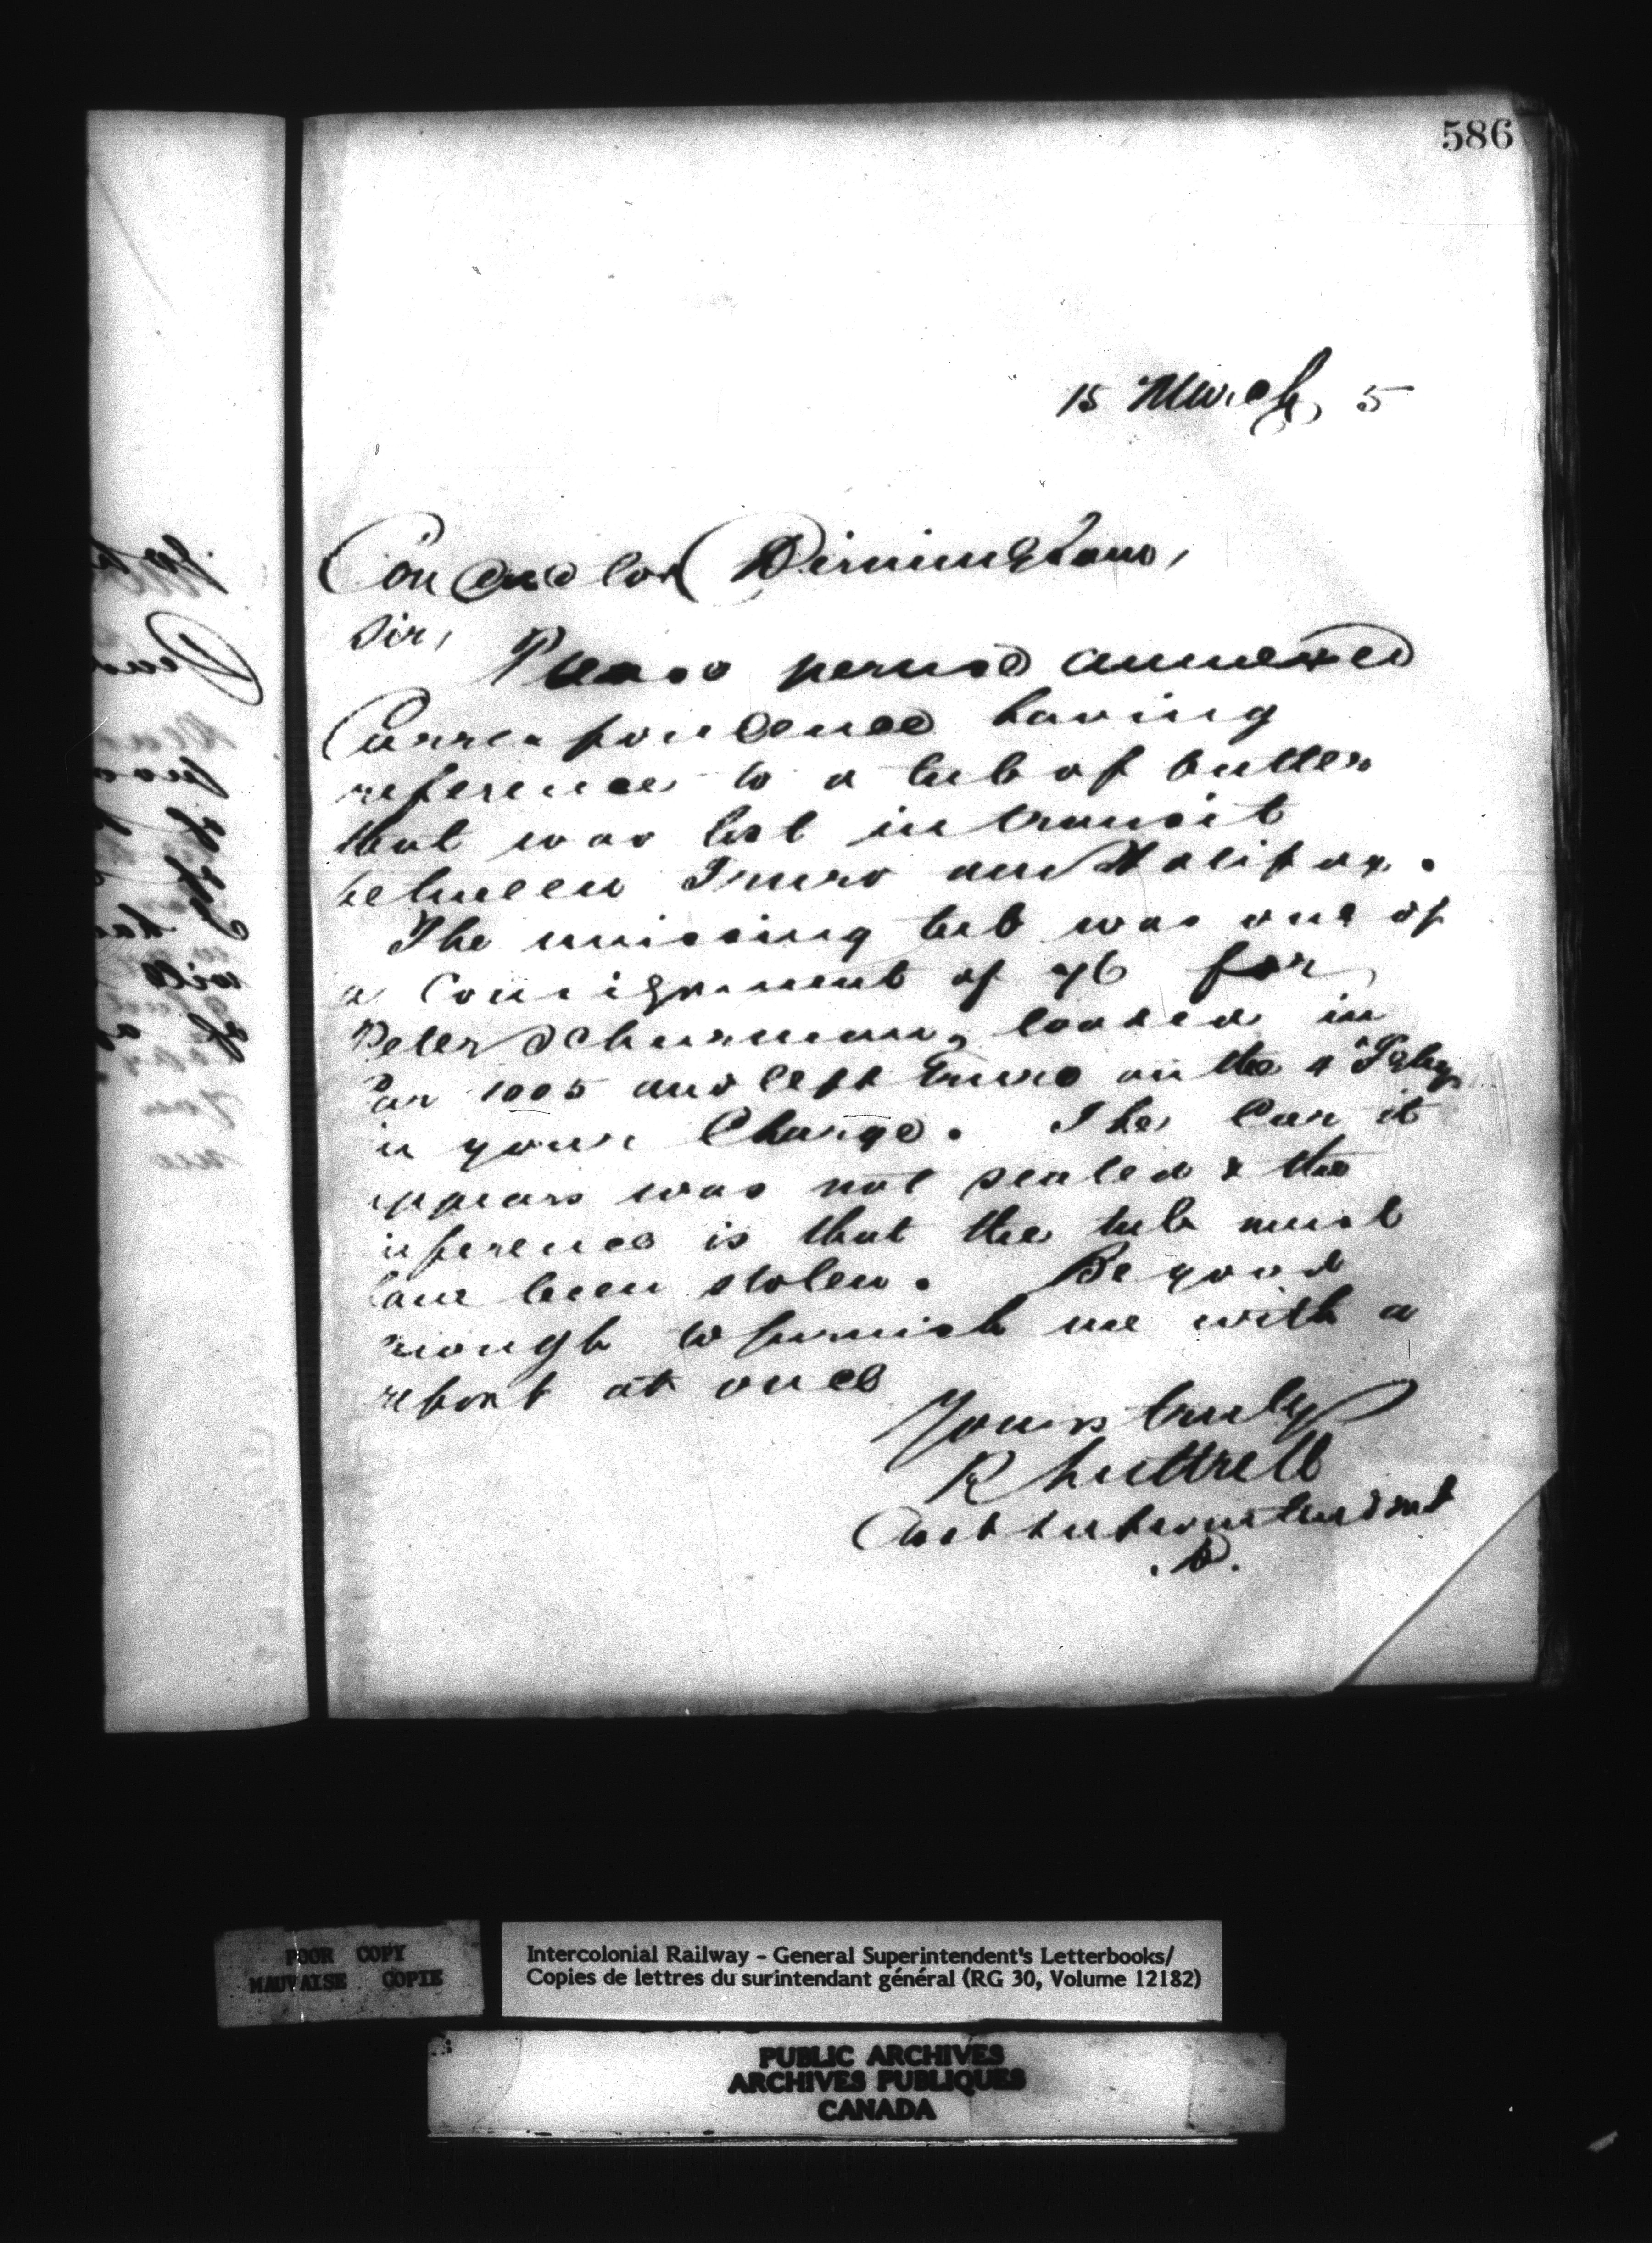 586
15 March, 5
Conductor Birmingham,
Sir,
Please peruse annexed
Correspondence having
reference to a tub of butter
that was lost in transit
between Truro and Halifax.
The missing tub was one of
a Consignment of 76 for
Peter Schurman, loaded in
Car 1005 and left Truro on the 4" Feby
in your Charge. The Car it
appears was not sealed & the
inference is that the tub must
have been stolen. Be good
enough to furnish me with a
report at once
Yours truly
R Luttrell
Asst Superintendent
POOR COPY
MAUVAISE COPIE
Intercolonial Railway - General Superintendent's Letterbooks/
Copies de lettres du surintendant général (RG 30, Volume 12182)
PUBLIC ARCHIVES
ARCHIVES PUBLIQUES
CANADA